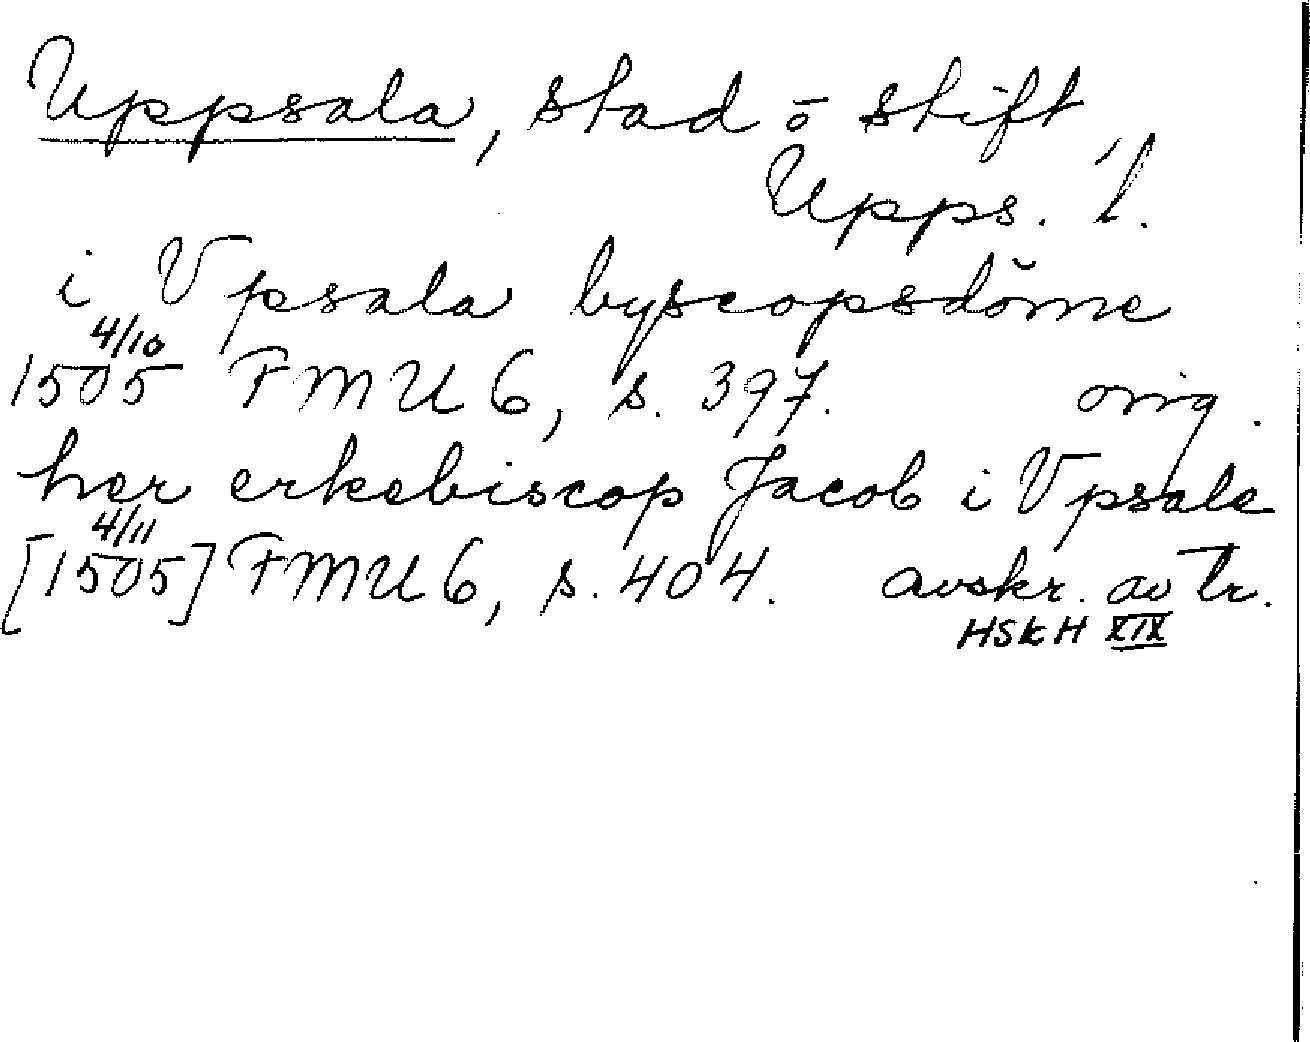 Uppsala, stad o stift
Upps. l.
i Vpsala byscopsdöme
4/10
1505 FMU 6, s. 397. orig.
her erkebiscop Jacob i Vpsale
4/11
[1505] FMU 6, s. 404. avskr. av tr.
HSkH XIX